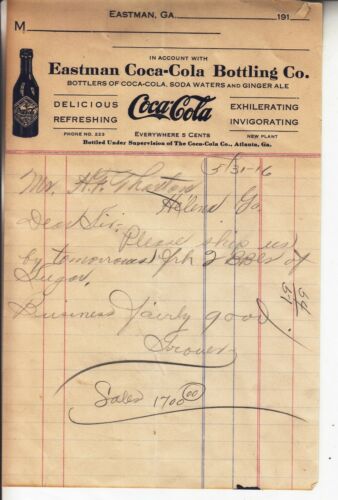 EASTMAN, GA. 191
M
IN ACCOUNT WITH
Eastman Coca-Cola Bottling Co.
BOTTLERS OF COCA-COLA, SODA WATERS AND GINGER ALE
DELICIOUS
REFRESHING
Coca-Cola
EXHILERATING
INVIGORATING
PHONE NO. 223
EVERYWHERE 5 CENTS
NEW PLANT
Bottled Under Supervision of The Coca-Cola Co., Atlanta, Ga.
5/31-16
Mr. Thaxton
Helena Ga,
Dear Sir:
Please ship us
by tomorrows 2 BBls of
Sugar.
Business fairly good.
Grover
Sales 1700 00